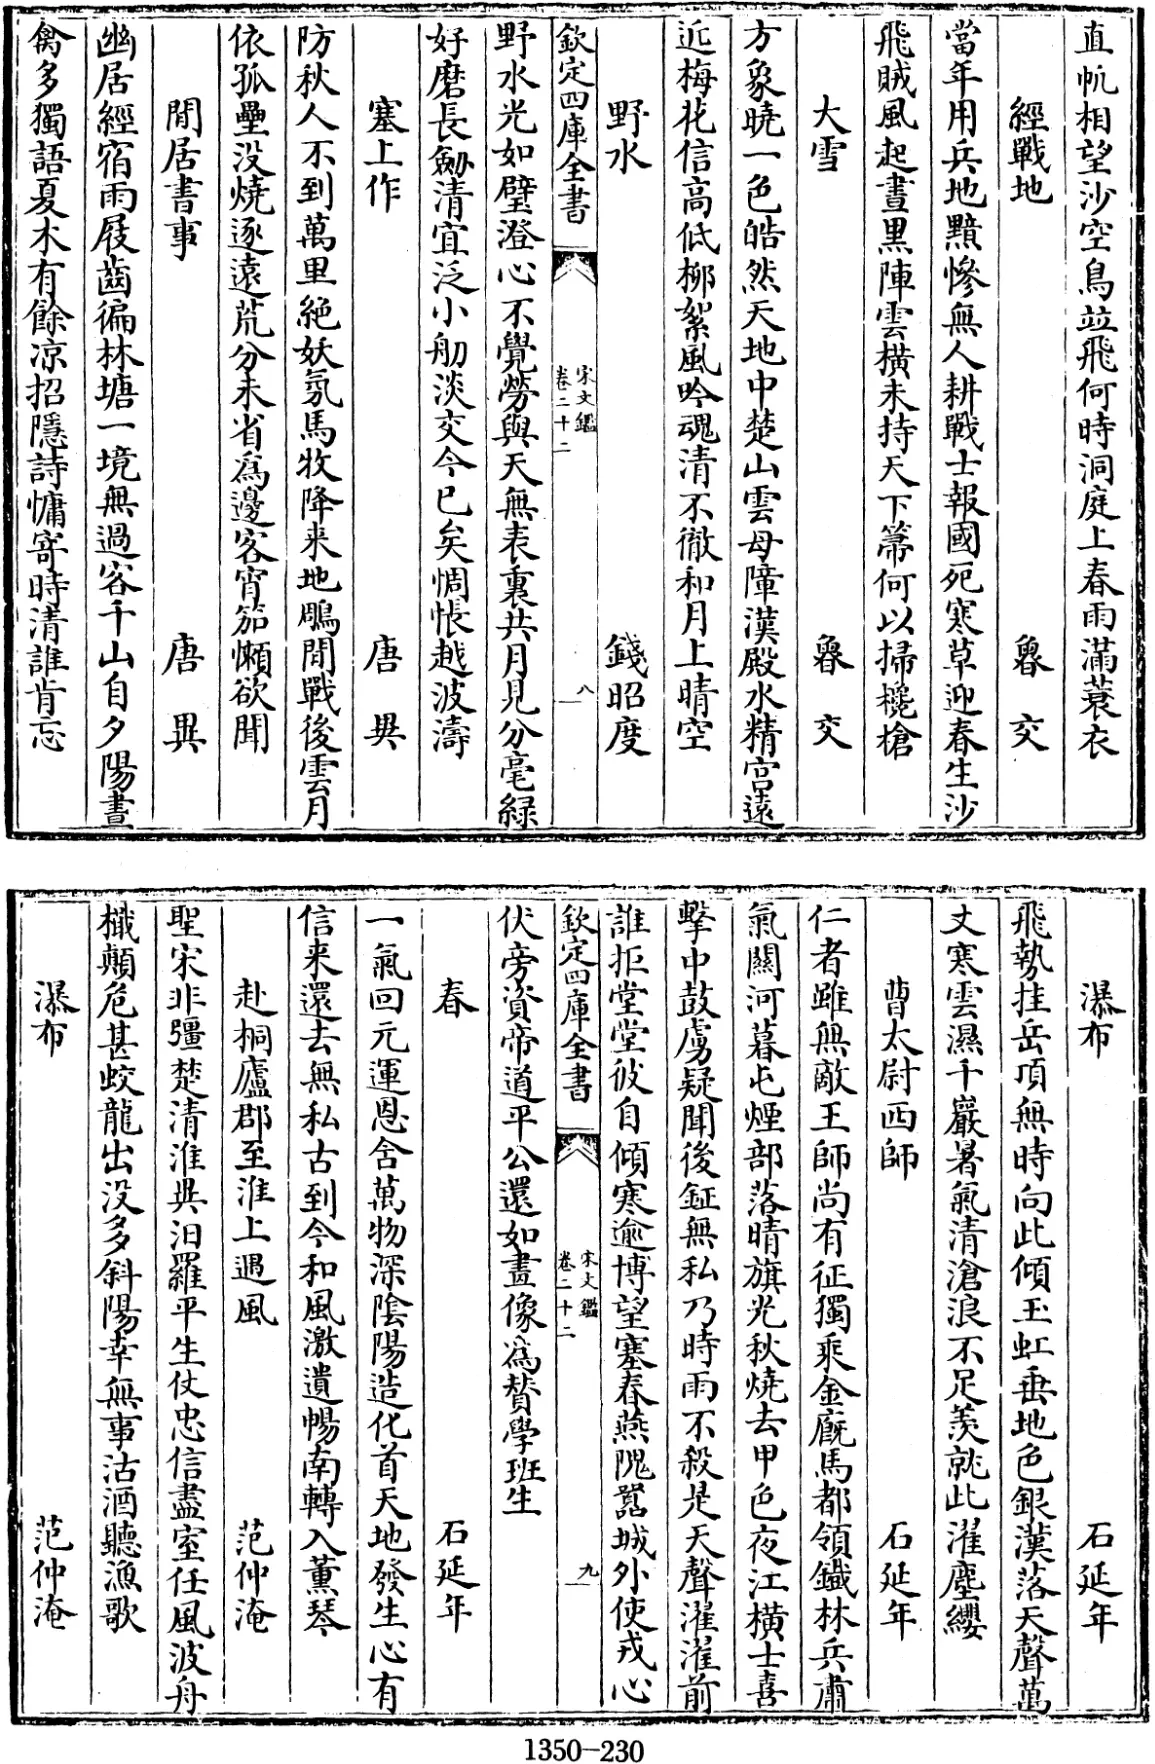 直帆相望沙空鳥竝飛何時洞庭上春雨滿蓑衣
經戰地 魯交
當年用兵地黯慘無人耕戰士報國死寒草迎春生沙
飛賊風起晝黒陣雲橫未持天下箒何以掃欃槍
大雪 魯交
方象曉一色皓然天地中楚山雲母障漢殿水精宫遠
近梅花信高低栁絮風吟魂清不徹和月上晴空
野水 錢昭度
欽定四庫全書
宋文鑑
卷二十二
八
野水光如璧澄心不覺勞與天無表裏共月見分毫緑
好磨長劒清宜泛小舠淡交今已矣惆悵越波濤
塞上作 唐異
防秋人不到萬里絶妖氛馬牧降来地鵰閒戰後雲月
依孤壘没燒逐遠荒分未省爲邊客宵笳懶欲聞
閒居書事 唐異
幽居經宿雨屐齒徧林塘一境無過客千山自夕陽晝
禽多獨語夏木有餘凉招隱詩慵寄時清誰肯忘
瀑布 石延年
飛勢挂岳頂無時向此傾玉虹垂地色銀漢落天聲萬
丈寒雲濕千巖暑氣清滄浪不足羨就此濯塵纓
曹太尉西師 石延年
仁者雖無敵王師尚有征獨乘金廐馬都領鐵林兵肅
氣關河暮屯煙部落晴旗光秋燒去甲色夜江橫士喜
擊中鼓虜疑聞後鉦無私乃時雨不殺是天聲濯濯前
誰拒堂堂彼自傾寒逾博望塞春燕隗嚣城外使戎心
欽定四庫全書
宋文鑑
卷二十二
九
伏旁資帝道平公還如畫像爲賛學班生
春 石延年
一氣回元運恩含萬物深陰陽造化首天地發生心有
信来還去無私古到今和風激遺暢南轉入薰琴
赴桐廬郡至淮上遇風 范仲淹
聖宋非彊楚清淮異汨羅平生仗忠信盡室任風波舟
檝顛危甚蛟龍出没多斜陽幸無事沽酒聽漁歌
瀑布 范仲淹
1350-230